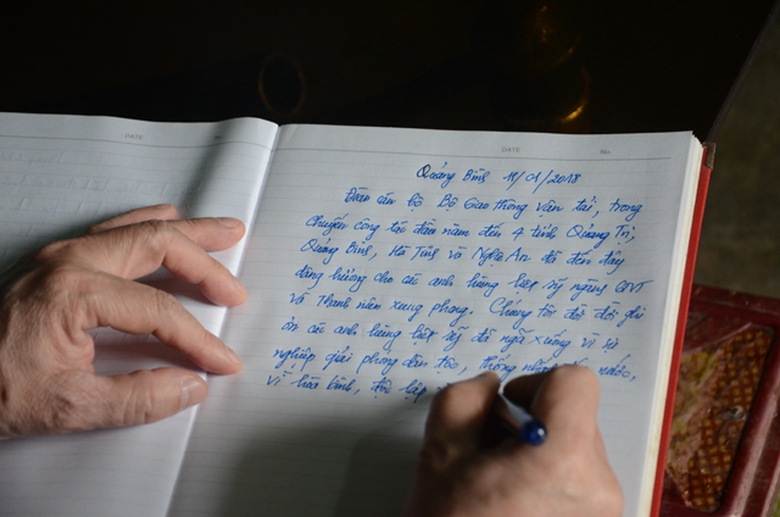 DATE
DATE
No.
Quảng Bình 18/01/2018
Đoàn cán bộ Bộ Giao thông vận tải, trong
chuyến công tác đầu năm đến 4 tỉnh Quảng Trị,
Quảng Bình, Hà Tĩnh và Nghệ An đã đến đây
dâng hương cho các anh hùng liệt sỹ ngành GTVT
và Thanh niên xung phong. Chúng tôi đời đời ghi
ơn các anh hùng liệt sỹ đã ngã xuống vì sự
nghiệp giải phóng dân tộc, thống nhất nước,
vì hòa bình, độc lập